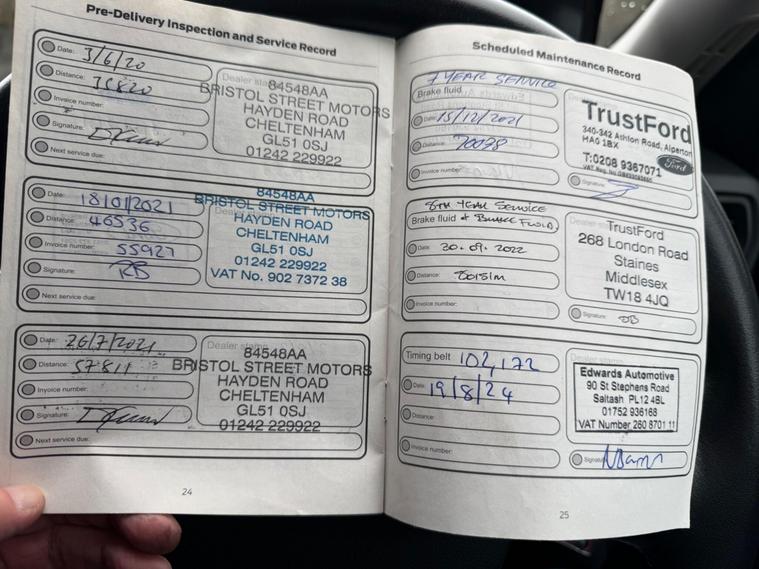 Pre-Delivery Inspection and Service Record
Date: 3/6/20
Distance: 35820
Invoice number:
Signature:
Next service due:
Dealer stamp
84548AA
BRISTOL STREET MOTORS
HAYDEN ROAD
CHELTENHAM
GL51 0SJ
01242 229922
Date: 18/01/2021
Distance: 46536
Invoice number: 55927
Signature: RB
Next service due:
Dealer stamp
84548AA
BRISTOL STREET MOTORS
HAYDEN ROAD
CHELTENHAM
GL51 0SJ
01242 229922
VAT No. 902 7372 38
Date: 26/7/2021
Distance: 57811
Invoice number:
Signature:
Next service due:
Dealer stamp
84548AA
BRISTOL STREET MOTORS
HAYDEN ROAD
CHELTENHAM
GL51 0SJ
01242 229922
24
Scheduled Maintenance Record
7 YEAR SERVICE
Brake fluid
Date: 15/12/2021
Distance: 70098
Invoice number:
TrustFord
340-342 Athlon Road, Alperton
HA0 1BX
T:0208 9367071
Ford
Signature:
8TH YEAR SERVICE
Brake fluid + BRAKE FLUID
Date: 30.09.2022
Distance: 80151m
Invoice number:
TrustFord
268 London Road
Staines
Middlesex
TW18 4JQ
Signature:
Timing belt 102,172
Date: 19/8/24
Distance:
Invoice number:
Dealer stamp
Edwards Automotive
90 St Stephens Road
Saltash PL12 4BL
01752 936168
VAT Number 260 8701 11
Signature:
25